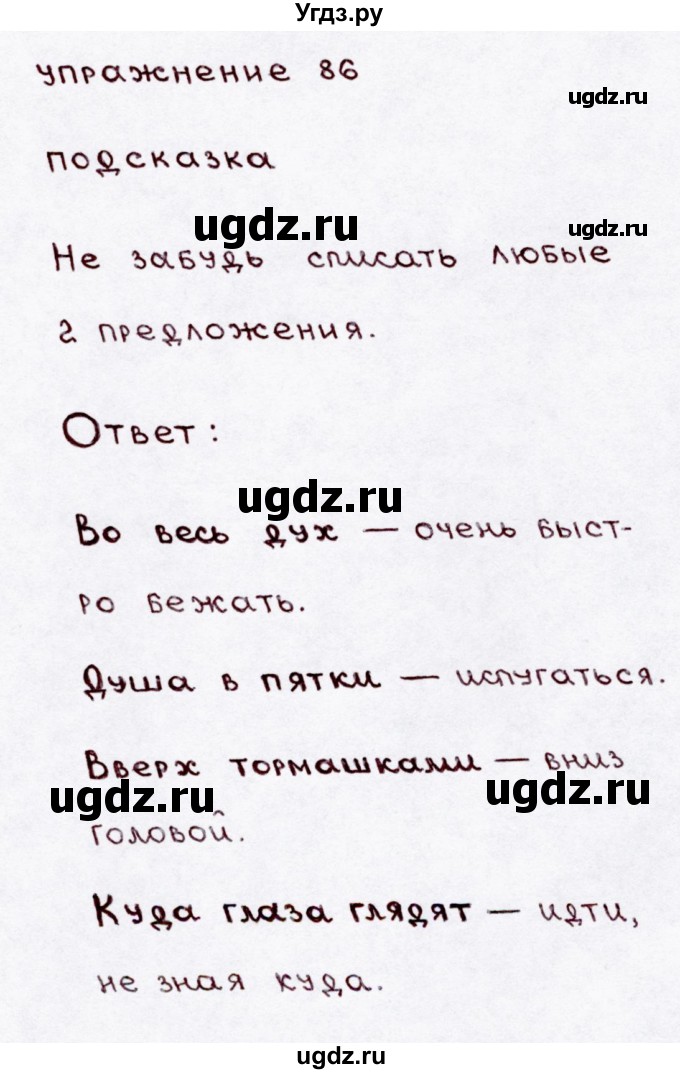 Угдз.ру
упражнение 86
ugdz.ru
подсказка
ugdz.ru
ugdz.ru
Не забудь списать любые
2 предложения.
Ответ:
ugdz.ru
Во весь дух — очень быст-
ро бежать.
Душа в пятки — испугаться.
Вверх тормашками — вниз
ugdz.ru
ugdz.ru
головой.
Куда глаза глядят — идти,
не зная куда.
ugdz.ru